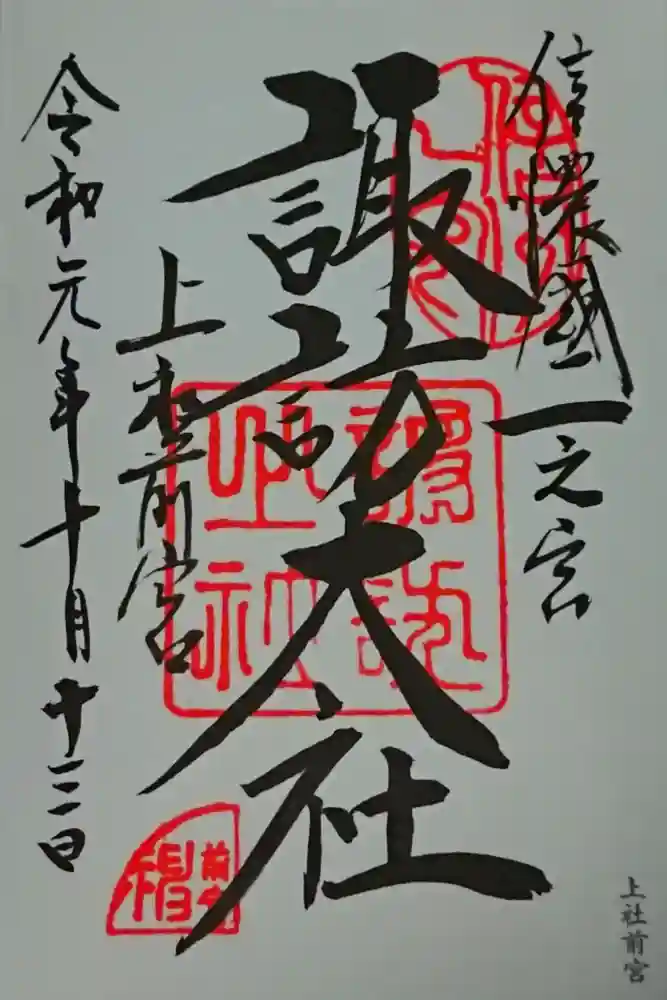 信濃國一之宮
諏訪大社
上社前宮
令和元年十月十三日
前宮
上社前宮